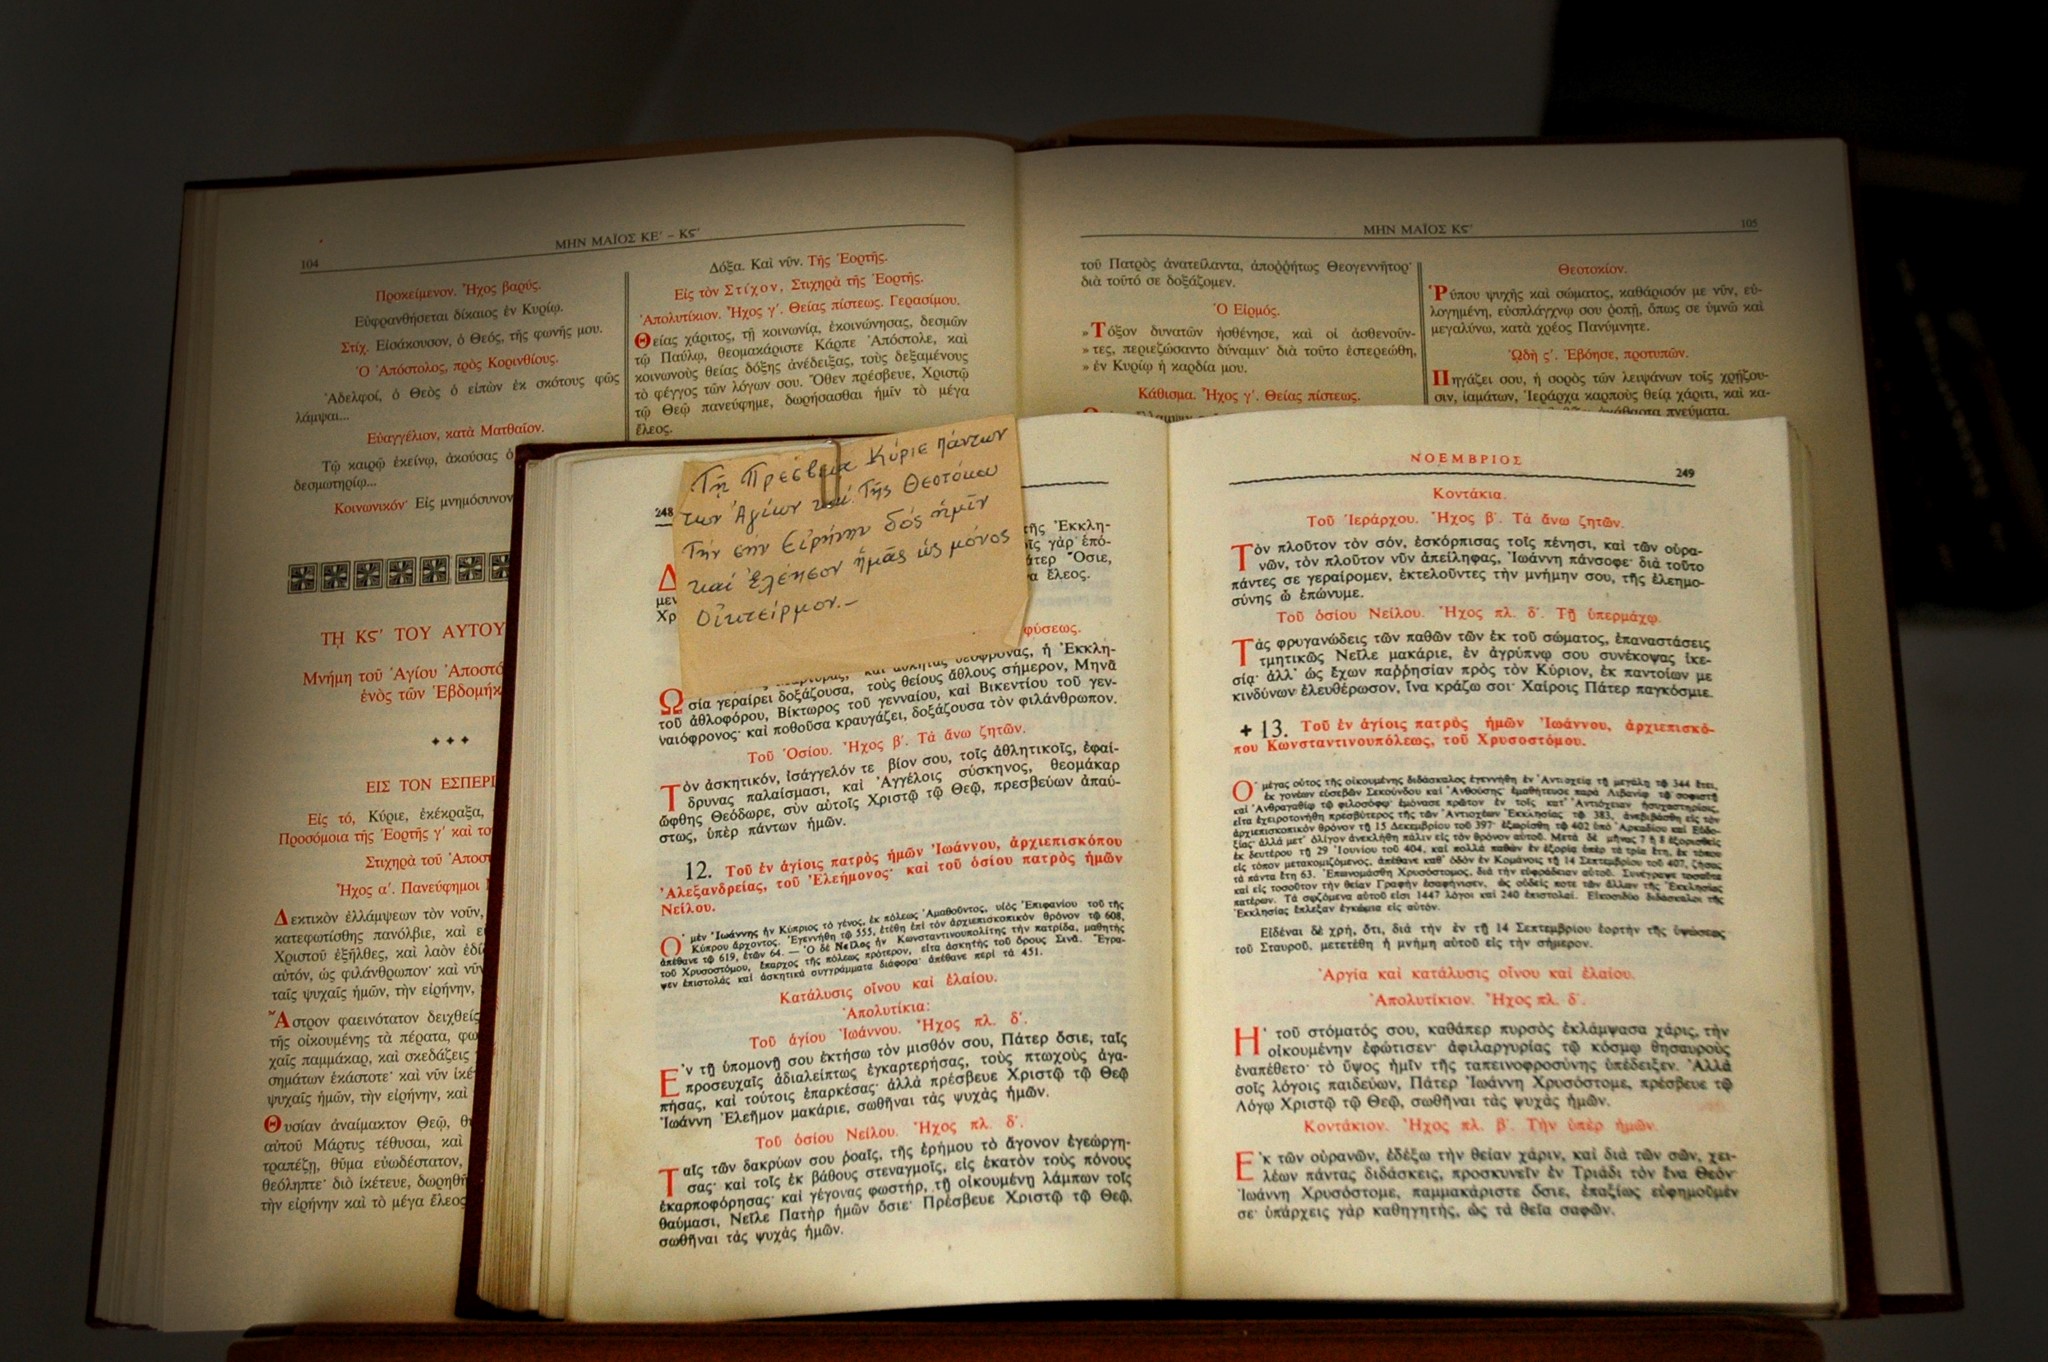 104
ΜΗΝ ΜΑΪΟΣ ΚΕ' – Κς'
Προκείμενον. Ἦχος βαρύς.
Εὐφρανθήσεται δίκαιος ἐν Κυρίῳ.
Στίχ. Εἰσάκουσον, ὁ Θεός, τῆς φωνῆς μου.
Ὁ Ἀπόστολος, πρὸς Κορινθίους.
Ἀδελφοί, ὁ Θεὸς ὁ εἰπὼν ἐκ σκότους φῶς
λάμψαι...
Εὐαγγέλιον, κατὰ Ματθαῖον.
Τῷ καιρῷ ἐκείνῳ, ἀκούσας ὁ
δεσμωτηρίῳ...
Κοινωνικόν· Εἰς μνημόσυνον
ΤΗ Κς' ΤΟΥ ΑΥΤΟΥ
Μνήμη τοῦ Ἁγίου Ἀποστό
ἑνὸς τῶν Ἑβδομήκ
ΕΙΣ ΤΟΝ ΕΣΠΕΡΙ
Εἰς τό, Κύριε, ἐκέκραξα,
Προσόμοια τῆς Ἑορτῆς γ' καὶ το
Στιχηρὰ τοῦ Ἀποστ
Ἦχος α'. Πανεύφημοι
Δεκτικὸν ἐλλάμψεων τὸν νοῦν,
κατεφωτίσθης πανόλβιε, καὶ ε
Χριστοῦ ἐξῆλθες, καὶ λαὸν ἐδί
αὐτόν, ὡς φιλάνθρωπον· καὶ νῦν
ταῖς ψυχαῖς ἡμῶν, τὴν εἰρήνην,
Ἄστρον φαεινότατον δειχθείς
τῆς οἰκουμένης τὰ πέρατα, φω
χαῖς παμμάκαρ, καὶ σκεδάζεις
σημάτων ἑκάστοτε· καὶ νῦν ἱκέτ
ψυχαῖς ἡμῶν, τὴν εἰρήνην, καὶ
Θυσίαν ἀναίμακτον Θεῷ, θι
αὐτοῦ Μάρτυς τέθυσαι, καὶ
τραπέζῃ, θῦμα εὐωδέστατον,
θεόληπτε· διὸ ἱκέτευε, δωρηθῆ
τὴν εἰρήνην καὶ τὸ μέγα ἔλεος
Δόξα. Καὶ νῦν. Τῆς Ἑορτῆς.
Εἰς τὸν Στίχον, Στιχηρὰ τῆς Ἑορτῆς.
Ἀπολυτίκιον. Ἦχος γ'. Θείας πίστεως. Γερασίμου.
Θείας χάριτος, τῇ κοινωνίᾳ, ἐκοινώνησας, δεσμῶν
τῷ Παύλῳ, θεομακάριστε Κάρπε Ἀπόστολε, καὶ
κοινωνοὺς θείας δόξης ἀνέδειξας, τοὺς δεξαμένους
τὸ φέγγος τῶν λόγων σου. Ὅθεν πρέσβευε, Χριστῷ
τῷ Θεῷ πανεύφημε, δωρήσασθαι ἡμῖν τὸ μέγα
ἔλεος.
ΜΗΝ ΜΑΪΟΣ Κς'
105
τοῦ Πατρὸς ἀνατείλαντα, ἀποῤῥήτως Θεογεννῆτορ·
διὰ τοῦτό σε δοξάζομεν.
Ὁ Εἱρμός.
» Τόξον δυνατῶν ἠσθένησε, καὶ οἱ ἀσθενοῦν-
» τες, περιεζώσαντο δύναμιν· διὰ τοῦτο ἐστερεώθη,
» ἐν Κυρίῳ ἡ καρδία μου.
Κάθισμα. Ἦχος γ'. Θείας πίστεως.
Θεοτοκίον.
Ῥύπου ψυχῆς καὶ σώματος, καθάρισόν με νῦν, εὐ-
λογημένη, εὐσπλάγχνῳ σου ῥοπῇ, ὅπως σε ὑμνῶ καὶ
μεγαλύνω, κατὰ χρέος Πανύμνητε.
ᾨδὴ ς'. Ἐβόησε, προτυπῶν.
Πηγάζει σου, ἡ σορὸς τῶν λειψάνων τοῖς χρῄζου-
σιν, ἰαμάτων, Ἱεράρχα καρποὺς θείᾳ χάριτι, καὶ κα-
ἀκάθαρτα πνεύματα.
Τῇ Πρεσβεία Κύριε πάντων
των Ἁγίων καί Τῆς Θεοτόκου
Τήν σήν Εἰρήνην δός ἡμῖν
καί Ἐλέησον ἡμᾶς ὡς μόνος
Οἰκτείρμον.–
248
τῆς Ἐκκλη-
οῖς γὰρ ἑπό-
άτερ Ὅσιε,
α ἔλεος.
Δ
μεν
Χρ
φύσεως.
καὶ ἀθλητὰς θεόφρονας, ἡ Ἐκκλη-
Ὡσία γεραίρει δοξάζουσα, τοὺς θείους ἄθλους σήμερον, Μηνᾶ
τοῦ ἀθλοφόρου, Βίκτωρος τοῦ γενναίου, καὶ Βικεντίου τοῦ γεν-
ναιόφρονος· καὶ ποθοῦσα κραυγάζει, δοξάζουσα τὸν φιλάνθρωπον.
Τοῦ Ὁσίου. Ἦχος β'. Τὰ ἄνω ζητῶν.
Τὸν ἀσκητικόν, ἰσάγγελόν τε βίον σου, τοῖς ἀθλητικοῖς, ἐφαί-
δρυνας παλαίσμασι, καὶ Ἀγγέλοις σύσκηνος, θεομάκαρ
ὤφθης Θεόδωρε, σὺν αὐτοῖς Χριστῷ τῷ Θεῷ, πρεσβεύων ἀπαύ-
στως, ὑπὲρ πάντων ἡμῶν.
12. Τοῦ ἐν ἁγίοις πατρὸς ἡμῶν Ἰωάννου, ἀρχιεπισκόπου
Ἀλεξανδρείας, τοῦ Ἐλεήμονος· καὶ τοῦ ὁσίου πατρὸς ἡμῶν
Νείλου.
Ὁ μὲν Ἰωάννης ἦν Κύπριος τὸ γένος, ἐκ πόλεως Ἀμαθοῦντος, υἱὸς Ἐπιφανίου τοῦ τῆς
Κύπρου ἄρχοντος. Ἐγεννήθη τῷ 555, ἐτέθη ἐπὶ τὸν ἀρχιεπισκοπικὸν θρόνον τῷ 608,
ἀπέθανε τῷ 619, ἐτῶν 64. — Ὁ δὲ Νεῖλος ἦν Κωνσταντινουπολίτης τὴν πατρίδα, μαθητὴς
τοῦ Χρυσοστόμου, ἔπαρχος τῆς πόλεως πρότερον, εἶτα ἀσκητὴς τοῦ ὄρους Σινᾶ. Ἔγρα-
ψεν ἐπιστολὰς καὶ ἀσκητικὰ συγγράμματα διάφορα· ἀπέθανε περὶ τὰ 451.
Κατάλυσις οἴνου καὶ ἐλαίου.
Ἀπολυτίκια:
Τοῦ ἁγίου Ἰωάννου. Ἦχος πλ. δ'.
Ἐν τῇ ὑπομονῇ σου ἐκτήσω τὸν μισθόν σου, Πάτερ ὅσιε, ταῖς
προσευχαῖς ἀδιαλείπτως ἐγκαρτερήσας, τοὺς πτωχοὺς ἀγα-
πήσας, καὶ τούτοις ἐπαρκέσας· ἀλλὰ πρέσβευε Χριστῷ τῷ Θεῷ
Ἰωάννη Ἐλεῆμον μακάριε, σωθῆναι τὰς ψυχὰς ἡμῶν.
Τοῦ ὁσίου Νείλου. Ἦχος πλ. δ'.
Ταῖς τῶν δακρύων σου ῥοαῖς, τῆς ἐρήμου τὸ ἄγονον ἐγεώργη-
σας· καὶ τοῖς ἐκ βάθους στεναγμοῖς, εἰς ἑκατὸν τοὺς πόνους
ἐκαρποφόρησας· καὶ γέγονας φωστήρ, τῇ οἰκουμένῃ λάμπων τοῖς
θαύμασι, Νεῖλε Πατὴρ ἡμῶν ὅσιε· Πρέσβευε Χριστῷ τῷ Θεῷ,
σωθῆναι τὰς ψυχὰς ἡμῶν.
ΝΟΕΜΒΡΙΟΣ
249
Κοντάκια.
Τοῦ Ἱεράρχου. Ἦχος β'. Τὰ ἄνω ζητῶν.
Τὸν πλοῦτον τὸν σόν, ἐσκόρπισας τοῖς πένησι, καὶ τῶν οὐρα-
νῶν, τὸν πλοῦτον νῦν ἀπείληφας, Ἰωάννη πάνσοφε· διὰ τοῦτο
πάντες σε γεραίρομεν, ἐκτελοῦντες τὴν μνήμην σου, τῆς ἐλεημο-
σύνης ὦ ἐπώνυμε.
Τοῦ ὁσίου Νείλου. Ἦχος πλ. δ'. Τῇ ὑπερμάχῳ.
Τὰς φρυγανώδεις τῶν παθῶν τῶν ἐκ τοῦ σώματος, ἐπαναστάσεις
τμητικῶς Νεῖλε μακάριε, ἐν ἀγρύπνῳ σου συνέκοψας ἱκε-
σίᾳ· ἀλλ' ὡς ἔχων παῤῥησίαν πρὸς τὸν Κύριον, ἐκ παντοίων με
κινδύνων ἐλευθέρωσον, ἵνα κράζω σοι· Χαίροις Πάτερ παγκόσμιε.
+ 13. Τοῦ ἐν ἁγίοις πατρὸς ἡμῶν Ἰωάννου, ἀρχιεπισκό-
που Κωνσταντινουπόλεως, τοῦ Χρυσοστόμου.
Ὁ μέγας οὗτος τῆς οἰκουμένης διδάσκαλος ἐγεννήθη ἐν Ἀντιοχείᾳ τῇ μεγάλῃ τῷ 344 ἔτει,
ἐκ γονέων εὐσεβῶν Σεκούνδου καὶ Ἀνθούσης· ἐμαθήτευσε παρὰ Λιβανίῳ τῷ σοφιστῇ
καὶ Ἀνδραγαθίῳ τῷ φιλοσόφῳ· ἐμόνασε πρῶτον ἐν τοῖς κατ' Ἀντιόχειαν ἡσυχαστηρίοις,
εἶτα ἐχειροτονήθη πρεσβύτερος τῆς τῶν Ἀντιοχέων Ἐκκλησίας τῷ 383, ἀνεβιβάσθη εἰς τὸν
ἀρχιεπισκοπικὸν θρόνον τῇ 15 Δεκεμβρίου τοῦ 397· ἐξωρίσθη τῷ 402 ὑπὸ Ἀρκαδίου καὶ Εὐδο-
ξίας· ἀλλὰ μετ' ὀλίγον ἀνεκλήθη πάλιν εἰς τὸν θρόνον αὐτοῦ. Μετὰ δὲ μῆνας 7 ἢ 8 ἐξορισθεὶς
ἐκ δευτέρου τῇ 29 Ἰουνίου τοῦ 404, καὶ πολλὰ παθὼν ἐν ἐξορίᾳ ὑπὲρ τὰ τρία ἔτη, ἐκ τόπου
εἰς τόπον μετακομιζόμενος, ἀπέθανε καθ' ὁδὸν ἐν Κομάνοις τῇ 14 Σεπτεμβρίου τοῦ 407, ζήσας
τὰ πάντα ἔτη 63. Ἐπωνομάσθη Χρυσόστομος, διὰ τὴν εὐφράδειαν αὐτοῦ. Συνέγραψε τοσαῦτα
καὶ εἰς τοσοῦτον τὴν θείαν Γραφὴν ἐσαφήνισεν, ὡς οὐδείς ποτε τῶν ἄλλων τῆς Ἐκκλησίας
πατέρων. Τὰ σῳζόμενα αὐτοῦ εἰσι 1447 λόγοι καὶ 240 ἐπιστολαί. Εἰκοσιδύο διδάσκαλοι τῆς
Ἐκκλησίας ἔπλεξαν ἐγκώμια εἰς αὐτόν.
Εἰδέναι δὲ χρή, ὅτι, διὰ τὴν ἐν τῇ 14 Σεπτεμβρίου ἑορτὴν τῆς ὑψώσεως
τοῦ Σταυροῦ, μετετέθη ἡ μνήμη αὐτοῦ εἰς τὴν σήμερον.
Ἀργία καὶ κατάλυσις οἴνου καὶ ἐλαίου.
Ἀπολυτίκιον. Ἦχος πλ. δ'.
Ἡ τοῦ στόματός σου, καθάπερ πυρσὸς ἐκλάμψασα χάρις, τὴν
οἰκουμένην ἐφώτισεν· ἀφιλαργυρίας τῷ κόσμῳ θησαυροὺς
ἐναπέθετο· τὸ ὕψος ἡμῖν τῆς ταπεινοφροσύνης ὑπέδειξεν. Ἀλλὰ
σοῖς λόγοις παιδεύων, Πάτερ Ἰωάννη Χρυσόστομε, πρέσβευε τῷ
Λόγῳ Χριστῷ τῷ Θεῷ, σωθῆναι τὰς ψυχὰς ἡμῶν.
Κοντάκιον. Ἦχος πλ. β'. Τὴν ὑπὲρ ἡμῶν.
Ἐκ τῶν οὐρανῶν, ἐδέξω τὴν θείαν χάριν, καὶ διὰ τῶν σῶν, χει-
λέων πάντας διδάσκεις, προσκυνεῖν ἐν Τριάδι τὸν ἕνα Θεόν·
Ἰωάννη Χρυσόστομε, παμμακάριστε ὅσιε, ἐπαξίως εὐφημοῦμέν
σε· ὑπάρχεις γὰρ καθηγητής, ὡς τὰ θεῖα σαφῶν.